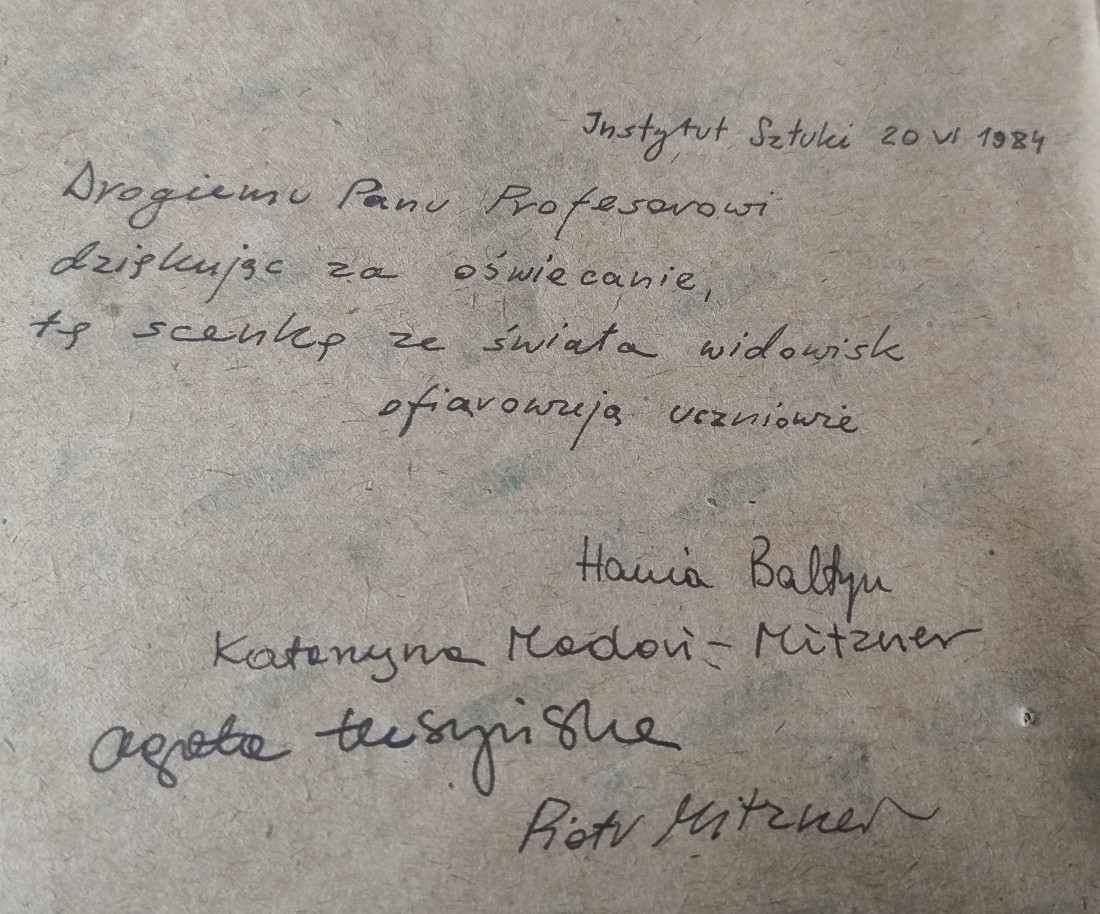 Instytut Sztuki 20 VI 1984
Drogiemu Panu Profesorowi
dziękując za oświecanie,
tę scenkę ze świata widowisk
ofiarowują uczniowie
Hania Baltyn
Katarzyna Madoń-Mitzner
Agata Tuszyńska
Piotr Mitzner